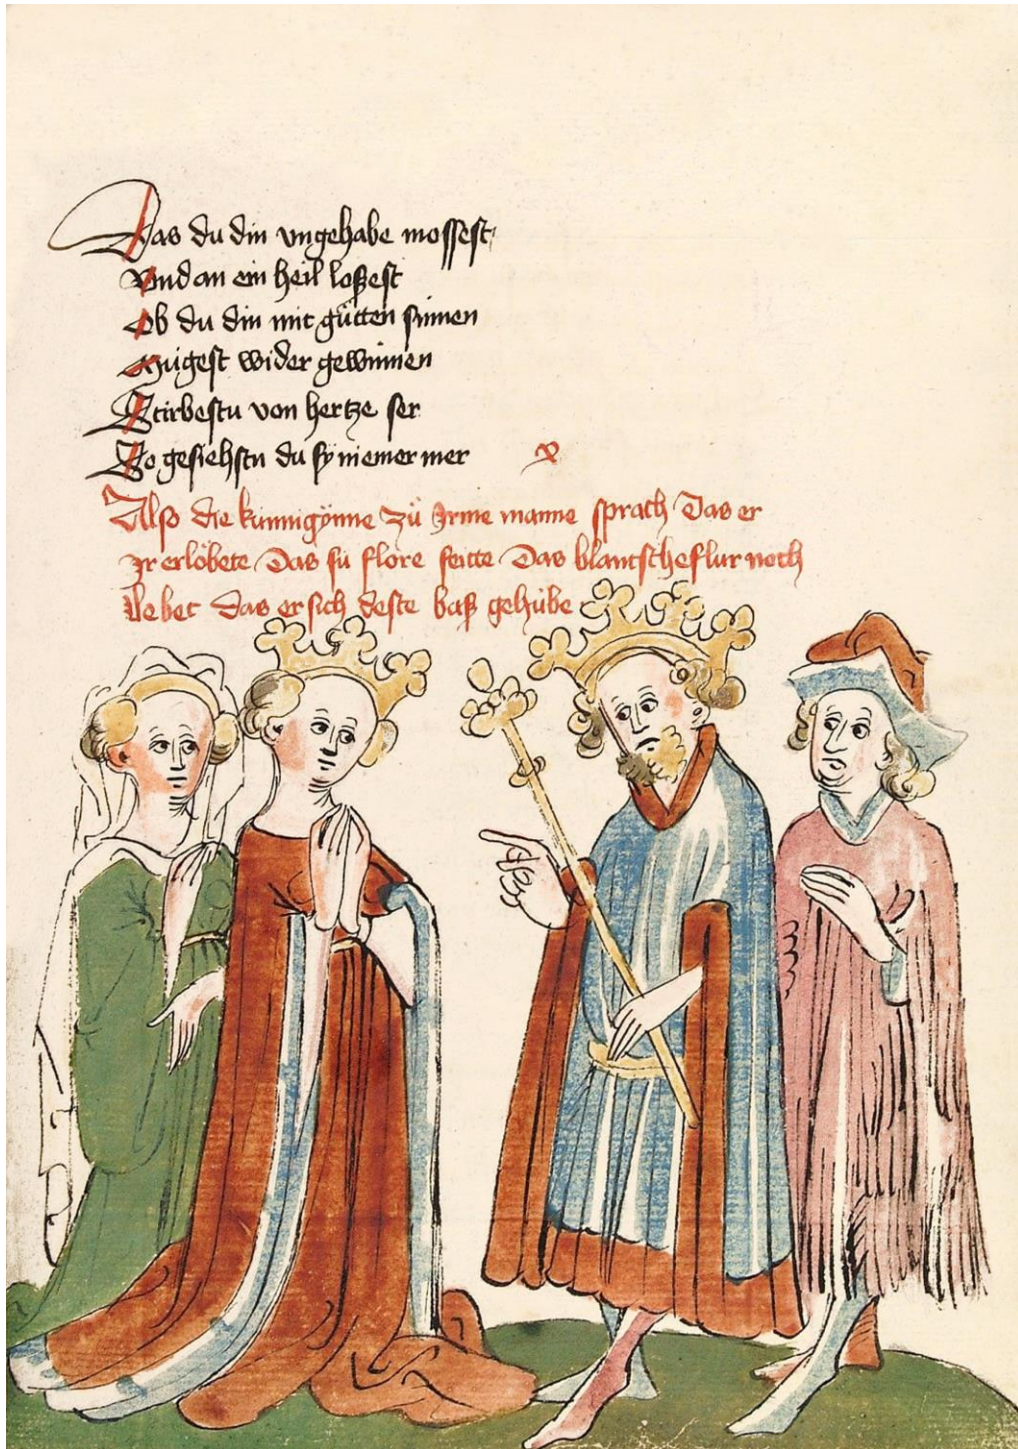 Das du din vngehabe mossest
Vnd an ein heil lossest
Ob du din mit gütten sinnen
Mügest wider gewinnen
Stirbestu von hertze ser
So gesiehstu du sÿ niemer mer
Also die kunnigÿnne zü Irme manne sprach Das er
Ir erlöbete Das sü flore seitte Das blantscheflur noch
lebet das er sich deste baß gehübe